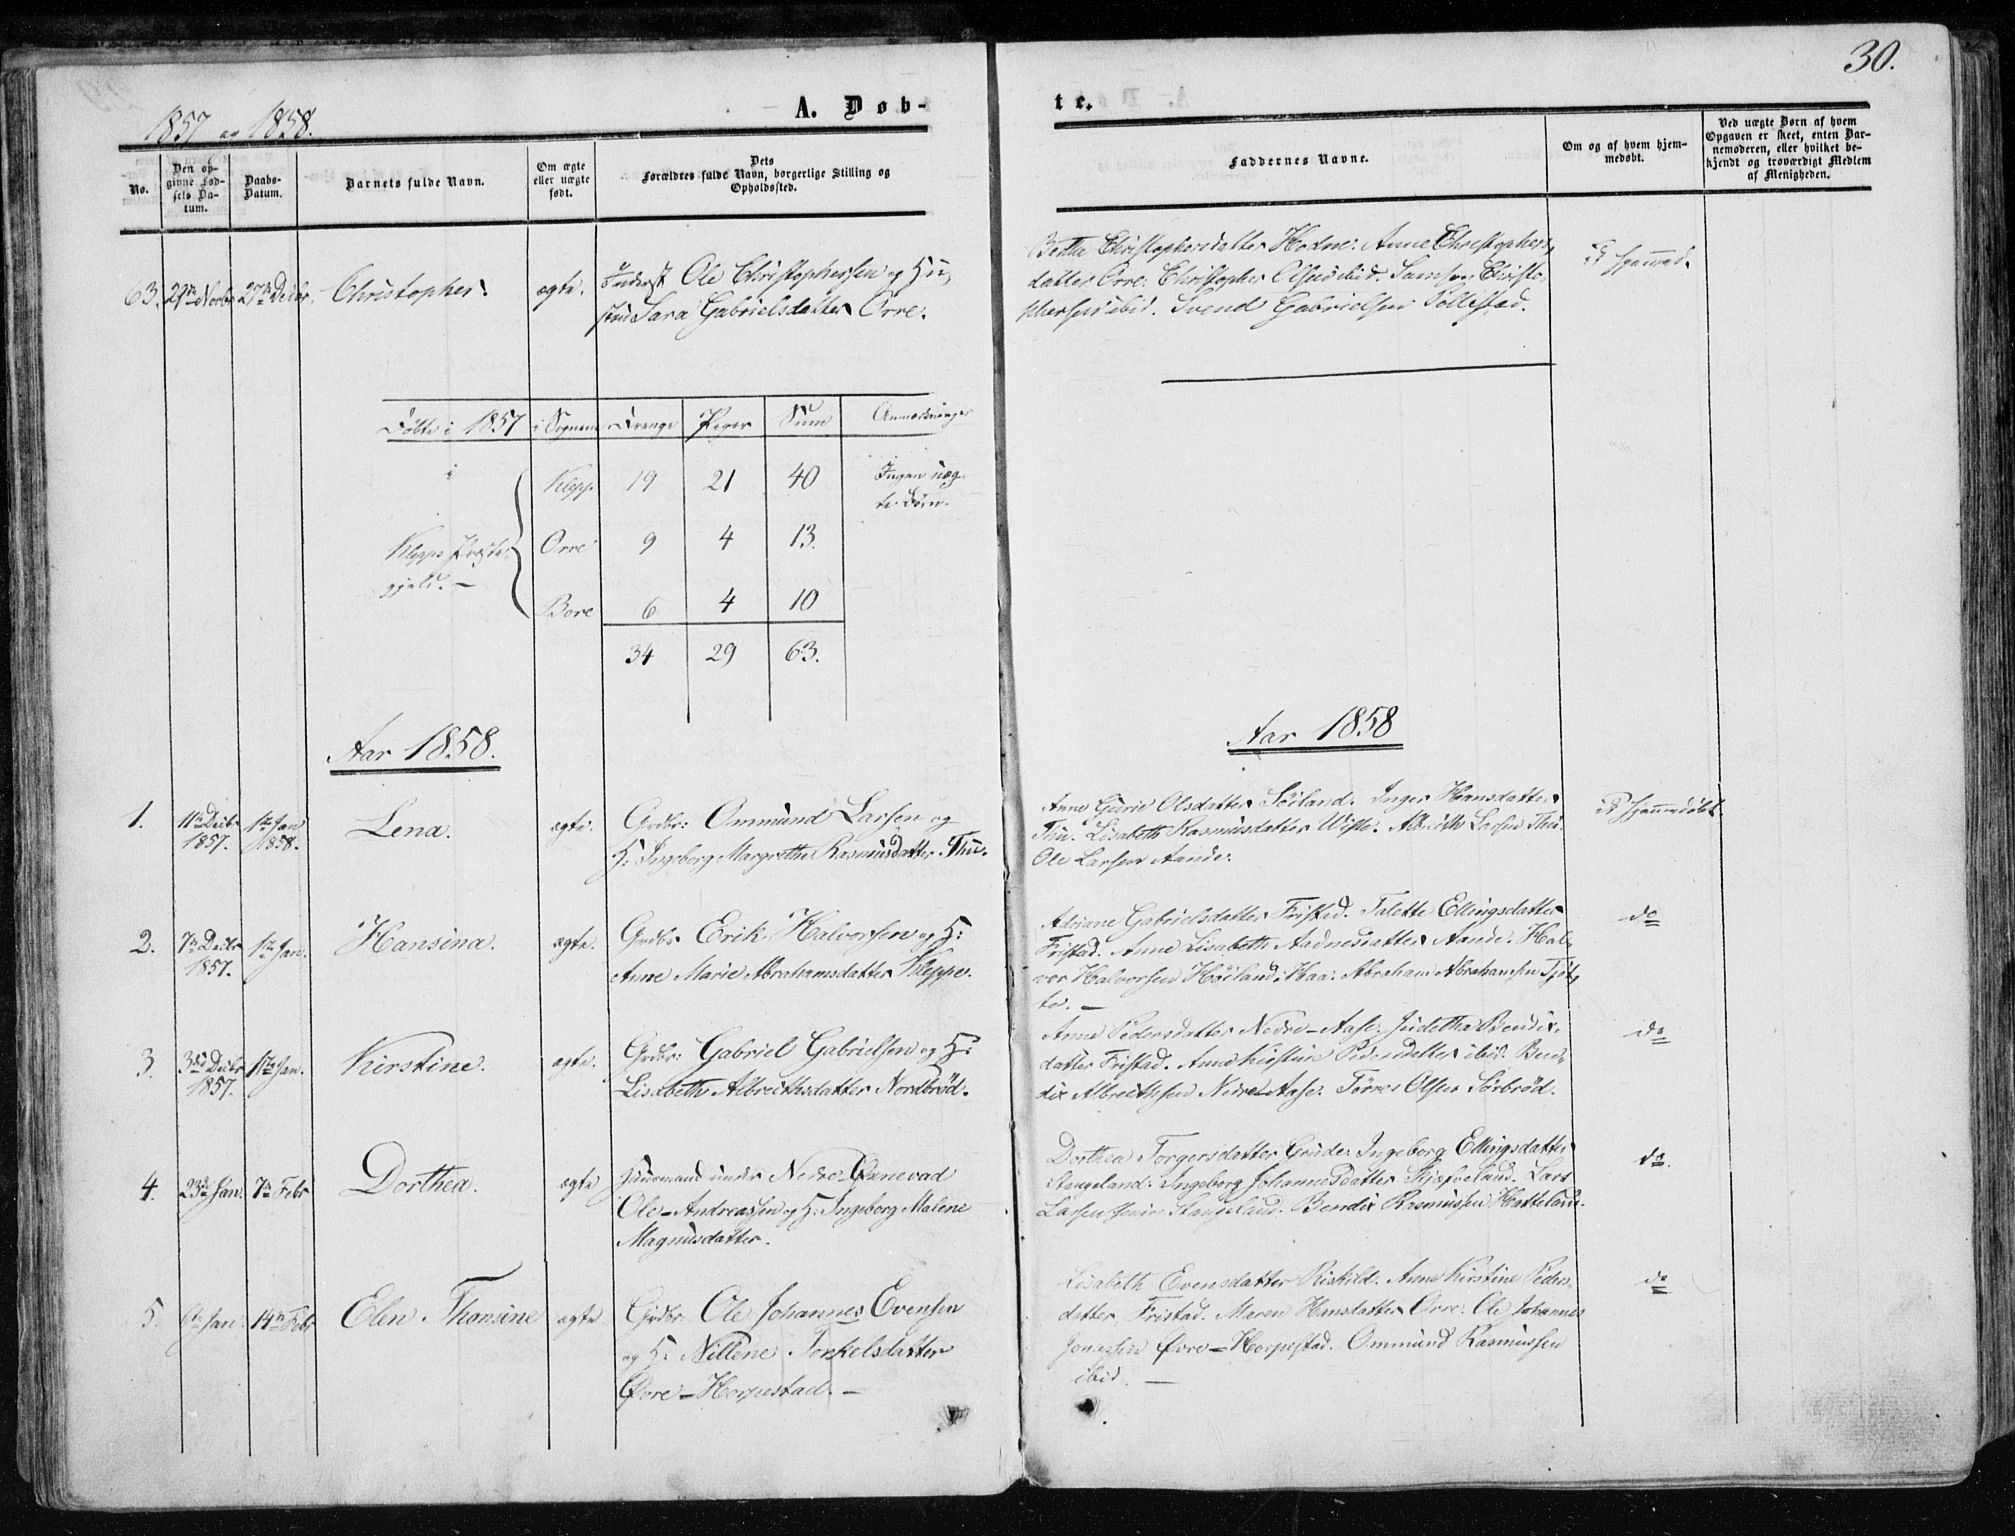 30.
1857 og 1858.
A. Døb-
te.
No.
Den op-
givne Fød-
sels Da-
tum.
Daabs-
Datum.
Barnets fulde Navn.
Om ægte
eller uægte
født.
Dets
Forældres fulde Navn, borgerlige Stilling og
Opholdssted.
Faddernes Navne.
Om og af hvem hjem-
medøbt.
Ved uægte Børn af hvem
Opgaven er skeet, enten Bar-
nemoderen, eller hvilket be-
kjendt og troværdigt Medlem
af Menigheden.
63. 29de Novbr 27de Decbr. Christopher. ægte.
Inderst Ole Christophersen og Hu-
stru Sara Gabrielsdatter Orre.
Berthe Christophersdatter Hodne. Anne Christophers-
datter Orre. Christopher Olsen ibid. Samson Christo-
phersen ibid. Svend Gabrielsen Pollestad.
Ei hjemmed.
Døbte i 1857 i Sognene Drenge Piger Sum Anmærkninger
i
Klepps Præste-
gjeld. —
Klepp 19 21 40 Ingen uæg-
te Børn.
Orre 9 4 13.
Bore 6 4 10
34 29 63.
Aar 1858.
Aar 1858
1. 11te Decbr 1857. 1ste Jan 1858. Lena. ægte.
Grdbr: Ommund Larsen og
H: Ingeborg Margrethe Rasmusdatter Thu.
Anne Gurie Olsdatter Söiland. Inger Hansdatter
Thu. Lisabeth Rasmusdatter Wiste. Albrecth Larsen Thu.
Ole Larsen Aande.
Ei hjemmedøbt.
2. 7de Decbr 1857. 1ste Jan. Hansina. ægte.
Grdbr Erik Halvorsen og H:
Anne Marie Abrahamsdatter Kleppe.
Adriane Gabrielsdatter Fristad. Talette Ellingsdatter
Fristad. Anne Lisabeth Aadnesdatter Aande. Hal-
vor Halvorsen Höiland i Haa. Abraham Abrahamsen Tjöt-
ta. —
do
3. 3die Decbr 1857. 1ste Jan. Kirstine. ægte.
Grdbr: Gabriel Gabrielsen og H:
Lisabeth Albrecthsdatter Nordbröd.
Anne Pedersdatter Nedre-Aase. Judetha Bendix-
datter Fristad. Anne Kirstine Pedersdatter ibid. Ben-
dix Albrecthsen Nedre-Aase. Törres Olsen Sörbröd.
do
4. 23de Jan. 7de Febr Dorthea. ægte
Huusmand under Nedre Øxnevad
Ole Andreassen og H: Ingeborg Malene
Magnusdatter.
Dorthea Torgersdatter Grude. Ingeborg Ellingsdatter
Stangeland. Ingeborg Johannesdatter Skjæveland. Lars
Larsen Stangeland. Bendix Rasmussen Hatteland.
do.
5. 6te Jan. 14de Febr Elen Thonsine ægte
Grdbr. Ole Johannes Evensen
og H: Nillene Torkelsdatter
Øvre-Horpestad. —
Lisabeth Evensdatter Riskild. Anne Kirstine Peders-
datter Fristad. Maren Hansdatter Orre. Ole Johannes
Jonassen Øvre-Horpestad. Ommund Rasmussen
ibid. —
do